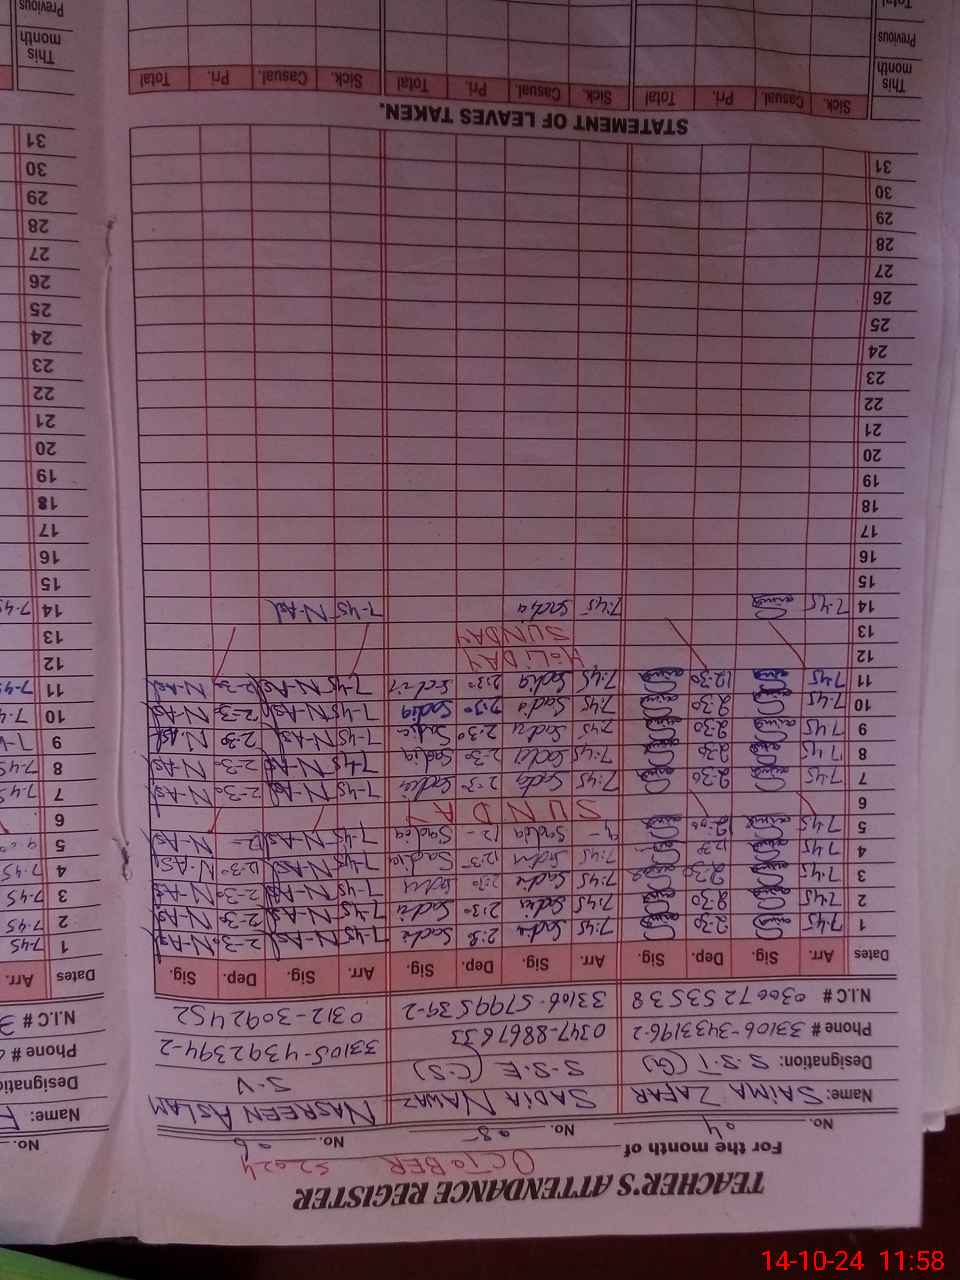 TEACHER'S ATTENDANCE REGISTER
For the month of OCTOBER 2024
No. 04 No. 05 No. 06
Name: SAIMA ZAFAR SADIA NAWAZ NASREEN ASLAM
Designation: S.S.T (G) S.S.E (C.S) S.V
Phone # 33106-3433196-2 0347-8867633 33105-4392394-2
N.I.C # 03007253538 33106-5799539-2 0312-3092452
Dates Arr. Sig. Dep. Sig. Arr. Sig. Dep. Sig. Arr. Sig. Dep. Sig.
1 7:45 2:30 7:45 Sadia 7-45 N-As 2-30 N-As
2 7:45 2:30 7:45 Sadia 2:30 Sadia 7-45 N-As 2-30 N-As
3 7:45 2:30 7:45 Sadia 2:30 Sadia 7-45 N-As 2-30 N-As
4 7:45 7:45 Sadia 12:35 Sadia 7-45 N-As 12-30 N-As
5 7:45 12:00 9- Sadia 12- Sadia 7-45 N-As 12- N-As
6 SUNDAY
7 7:45 2:30 7:45 Sadia 2:30 Sadia 7-45 N-As 2-30 N-As
8 7:45 2:30 7:45 Sadia 2:30 Sadia 7-45 N-As 2-30 N-As
9 7:45 2:30 7:45 Sadia 2:30 Sadia 7-45 N-As 2-30 N-As
10 7:45 2:30 7:45 Sadia 2:30 Sadia 7-45 N-As 2-30 N-As
11 7:45 12:30 7:45 Sadia 2:30 Sadia 7-45 N-As 2-30 N-As
12 HOLIDAY
13 SUNDAY
14 7:45 7:45 Sadia 7-45 N-As
15
16
17
18
19
20
21
22
23
24
25
26
27
28
29
30
31
STATEMENT OF LEAVES TAKEN.
Sick. Casual. Pri. Total Sick. Casual. Pri. Total Sick. Casual. Pri. Total
This month
Previous
Total
Name:
Designation
Phone #
N.I.C # 3
Dates Arr.
1 7:45
2 7-45
3 7-45
4 7-45
5
6
7 7-45
8 7-45
9
10
11
12
13
14 7-45
15
16
17
18
19
20
21
22
23
24
25
26
27
28
29
30
31
This month
Previous
14-10-24 11:58